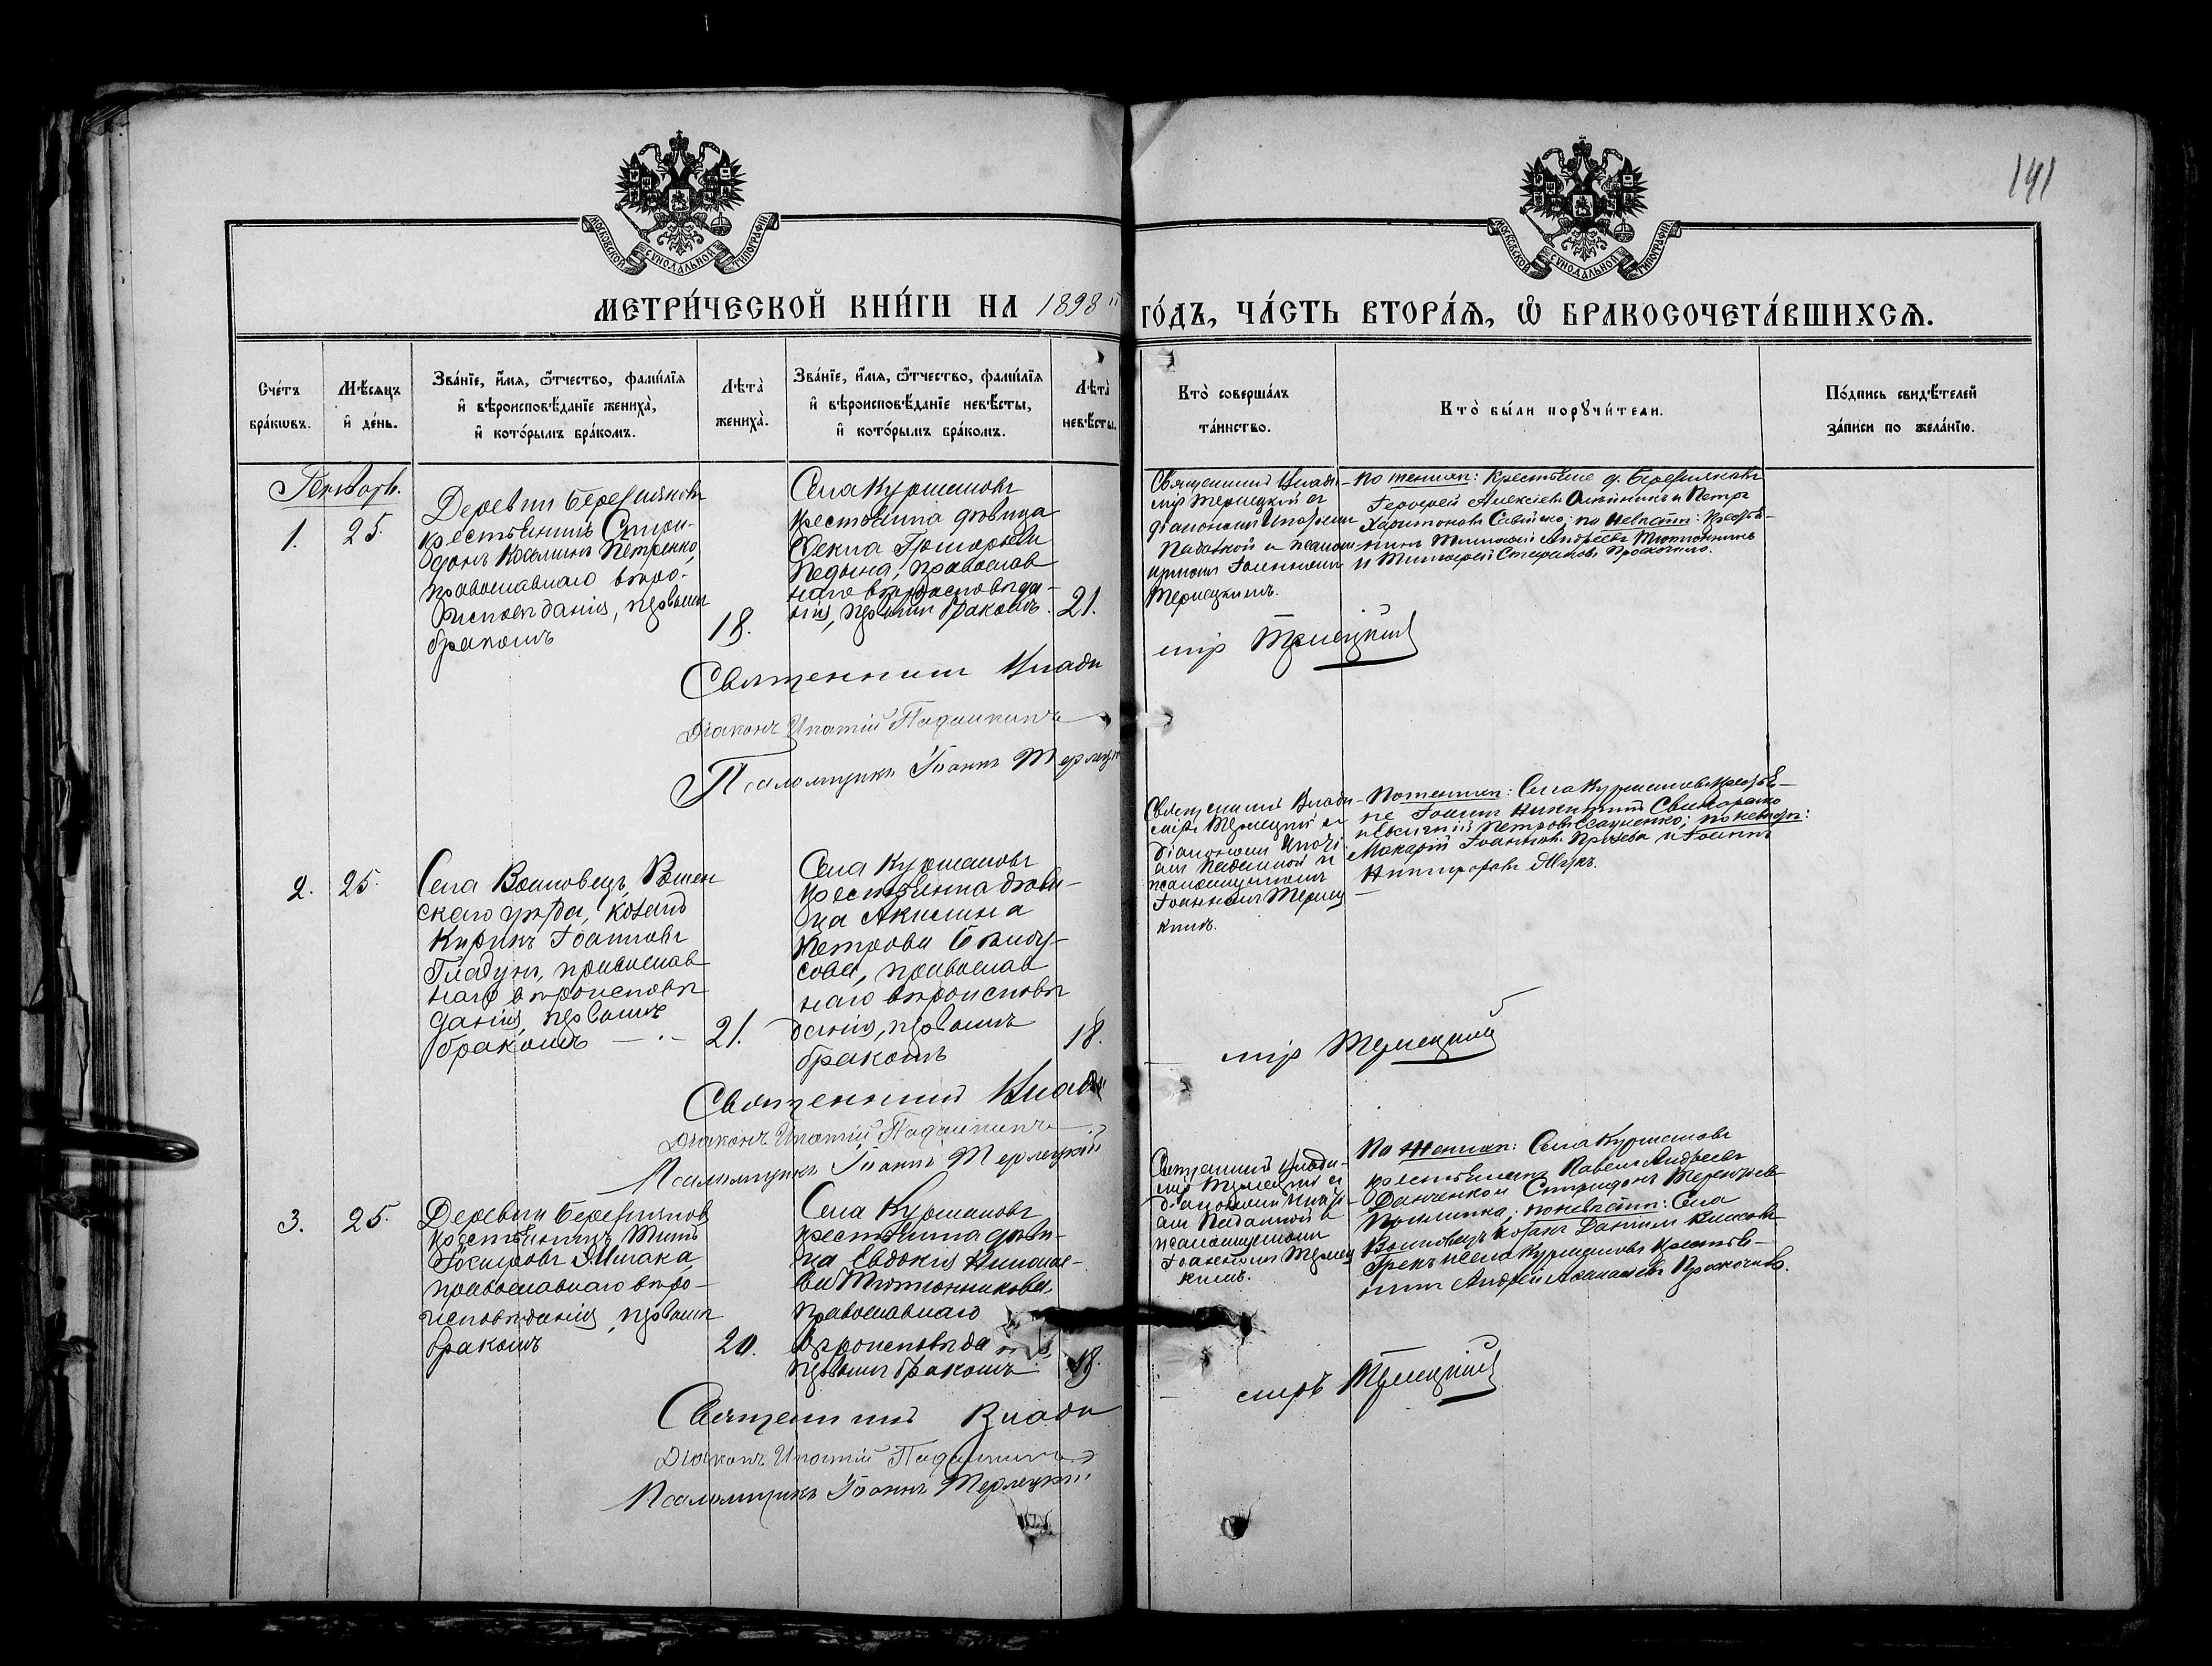 191
МОСКОВСКОЙ СѴНОДАЛЬНОЙ ТИПОГРАФІИ
МОСКОВСКОЙ СѴНОДАЛЬНОЙ ТИПОГРАФІИ
МЕТРИ́ЧЕСКОЙ КНИ́ГИ НА 1898 ГО́ДЪ, ЧА́СТЬ ВТОРА́Ѧ, Ѡ҆ БРАКОСОЧЕТА́ВШИХСѦ.
Сче́тъ
бра́кѡвъ.
Мѣ́сяцъ
и҆ де́нь.
Зва́нїе, и҆́мѧ, ѻ҆́тчество, фами́лїѧ
и҆ вѣроисповѣ́данїе жениха̀,
и҆ кото́рымъ бра́комъ.
Лѣта̀
жениха̀.
Зва́нїе, и҆́мѧ, ѻ҆́тчество, фами́лїѧ
и҆ вѣроисповѣ́данїе невѣ́сты,
и҆ кото́рымъ бра́комъ.
Лѣта̀
невѣ́сты.
Кто̀ соверша́лъ
та́инство.
Кто̀ бы́ли порꙋчи́тели.
По́дпись свидѣ́телей
за́писи по жела́нїю.
Январь.
1.
25.
Деревни Березняковъ
крестьянинъ Спири-
донъ Косминъ Петренко,
православнаго вѣро-
исповѣданія, первымъ
бракомъ
18.
Села Курмановъ
крестьянка дѣвица
Фекла Григорьева
православ
наго вѣроисповѣда-
нія, первымъ бракомъ.
21.
Священникъ Влади-
міръ Терлецкій съ
діакономъ Ипатіем
и псалом
щикомъ Іоанномъ
Терлецкимъ.
По женихѣ: крестьяне д. Березняковъ
Алексіевъ Олейникъ и Петръ
Харитоновъ по невѣстѣ: кресть-
яне Андреевъ Тютюнникъ
и Тимофей Стефановъ Прокопенко.
Священникъ Влади
міръ Терлецкій
Діаконъ Ипатій
Псаломщикъ Іоаннъ Терлецк
2.
25.
Села Волховецъ, Ромен
скаго уѣзда, козакъ
Кирикъ Іоанновъ
Гладунъ, православ
наго вѣроисповѣ
данія, первымъ
бракомъ
21.
Села Курмановъ
крестьянка дѣви-
ца Акилина
Петрова
православ
наго вѣроисповѣ
данія, первымъ
бракомъ
18.
Священникъ Влади-
міръ Терлецкій съ
діакономъ Ипаті
емъ и
псаломщикомъ
Іоанномъ Терлец
кимъ.
По женихѣ: Села Курмановъ кресть-
не Іоаннъ Никитинъ
Петровъ по невѣстѣ:
Макарій Іоанновъ и Іоаннъ
Никифоровъ Жукъ.
Священникъ Влади
міръ Терлецкій
Діаконъ Ипатій
Псаломщикъ Іоаннъ Терлецкій
3.
25.
Деревни Березняковъ
крестьянинъ Титъ
православнаго вѣро-
исповѣданія, первымъ
бракомъ
20.
Села Курмановъ
крестьянка дѣви-
ца Евдокія Николае-
ва Тютюнникова,
православнаго
вѣроисповѣда нія,
первымъ бракомъ
18.
Священникъ Влади-
міръ Терлецкій съ
діакономъ Ипаті
емъ и
псаломщикомъ
Іоанномъ Терлец
кимъ.
По женихѣ: Села Курмановъ
крестьянинъ Павелъ Андреевъ
Данченко и Спиридонъ Терентьев
по невѣстѣ: Села
козакъ Даніилъ Власовъ
Грекъ и села Курмановъ крестья-
нинъ Андрей
Священникъ Влади
міръ Терлецкій
Діаконъ Ипатій
Псаломщикъ Іоаннъ Терлецкій